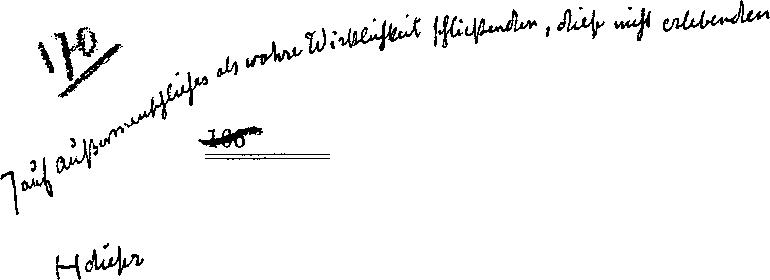 170
⌉ auf außermenschliches als wahre Wirklichkeit schließenden, diese nicht erlebenden
166
H dieser